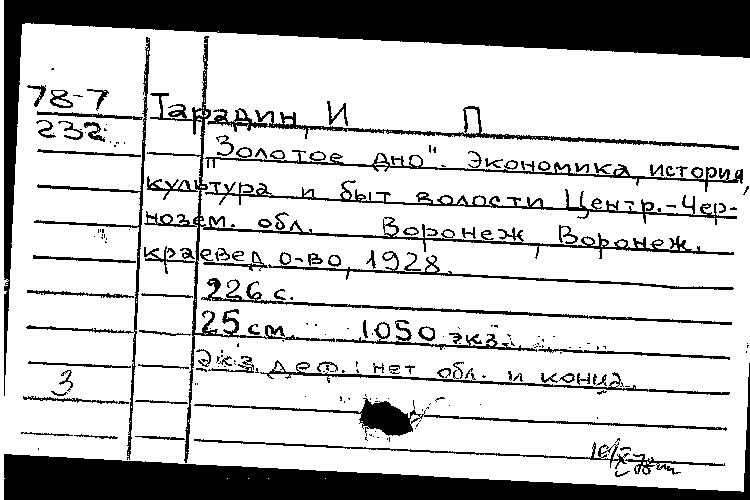 78-7
232
Тарадин, И П
"Золотое дно". Экономика, история,
культура и быт волости Центр.-Чер-
нозем. обл. Воронеж, Воронеж.
краевед. о-во, 1928.
226 с.
25 см. 1050 экз.
Экз. деф.: нет обл. и конца.
3